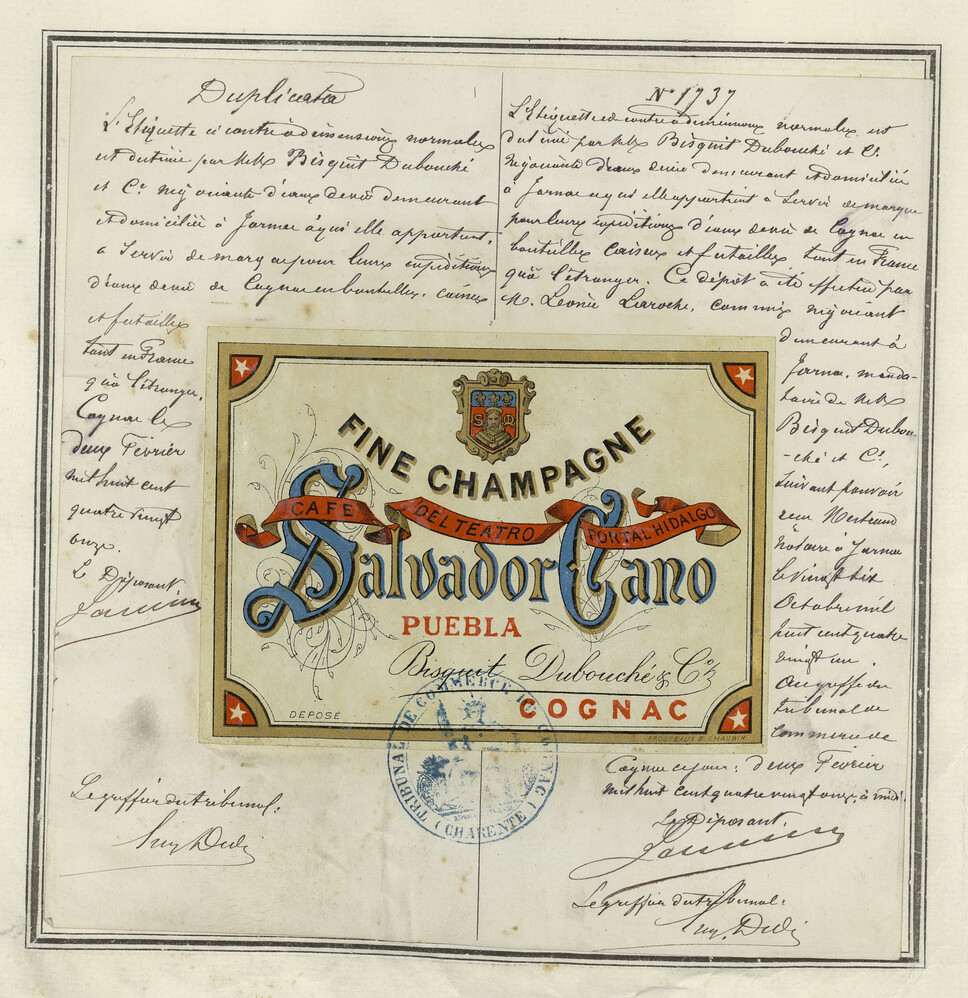 Duplicata
L'Etiquette ci contre à dimensions normales
est destinée par MM Bisquit Dubouché
et Cie négociants d'eaux de vie demeurant
et domiciliés à Jarnac à qui elle appartient,
à servir de marque pour leurs expéditions
d'eaux de vie de Cognac en bouteilles, caisses
et futailles
tant en France
qu'à l'étranger.
Cognac le
deux Février
mil huit cent
quatre vingt
onze.
Le Déposant
Le greffier du tribunal.
No 1737
L'Etiquette ci contre à dimensions normales est
destinée par MM Bisquit Dubouché et Cie
négociants d'eaux de vie demeurant et domiciliés
à Jarnac à qui elle appartient à servir de marque
pour leurs expéditions d'eaux de vie de Cognac en
bouteilles caisses et futailles tant en France
qu'à l'étranger. Ce dépôt a été effectué par
M. Léonce Laroche, commis négociant
demeurant à
Jarnac, manda-
taire de MM
Bisquit Dubou-
-ché et Cie,
suivant pouvoir
reçu
notaire à Jarnac
le vingt six
Octobre mil
huit cent quatre
vingt un.
Au greffe du
tribunal de
Commerce de
Cognac ce jour: deux Février
mil huit cent quatre vingt onze, à midi.
Le Déposant,
Le greffier du tribunal:
S M
FINE CHAMPAGNE
CAFE DEL TEATRO PORTAL HIDALGO
Salvador Cano
PUEBLA
Bisquit Dubouché & Co
COGNAC
DEPOSÉ
TRIBUNAL DE COMMERCE DE COGNAC
(CHARENTE)